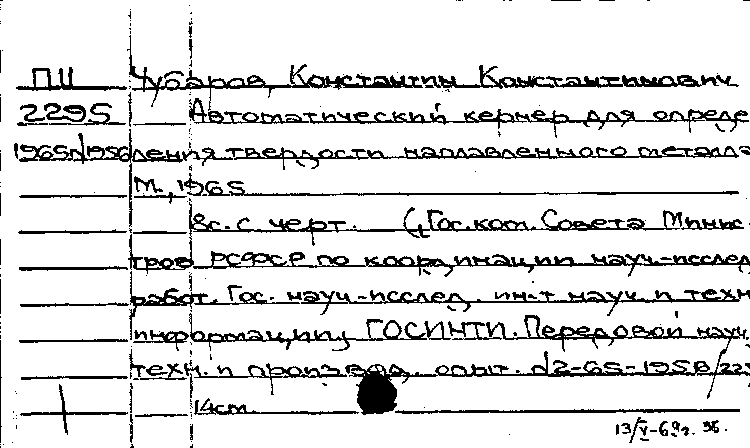 ПЦ Чубаров, Константин Константинович
2295 Автоматический кернер для опреде
1965г/1956 ления твердости наплавленного металла
М., 1965
8с. с черт. (Гос. ком. Совета Минис-
тров РСФСР по координации науч.-исслед
работ. Гос. науч.-исслед. ин-т науч. и техн
информации, ГОСИНТИ. Передовой науч.
техн. и производ. опыт. №2-65-1958/22
14см.
13/V-69г.